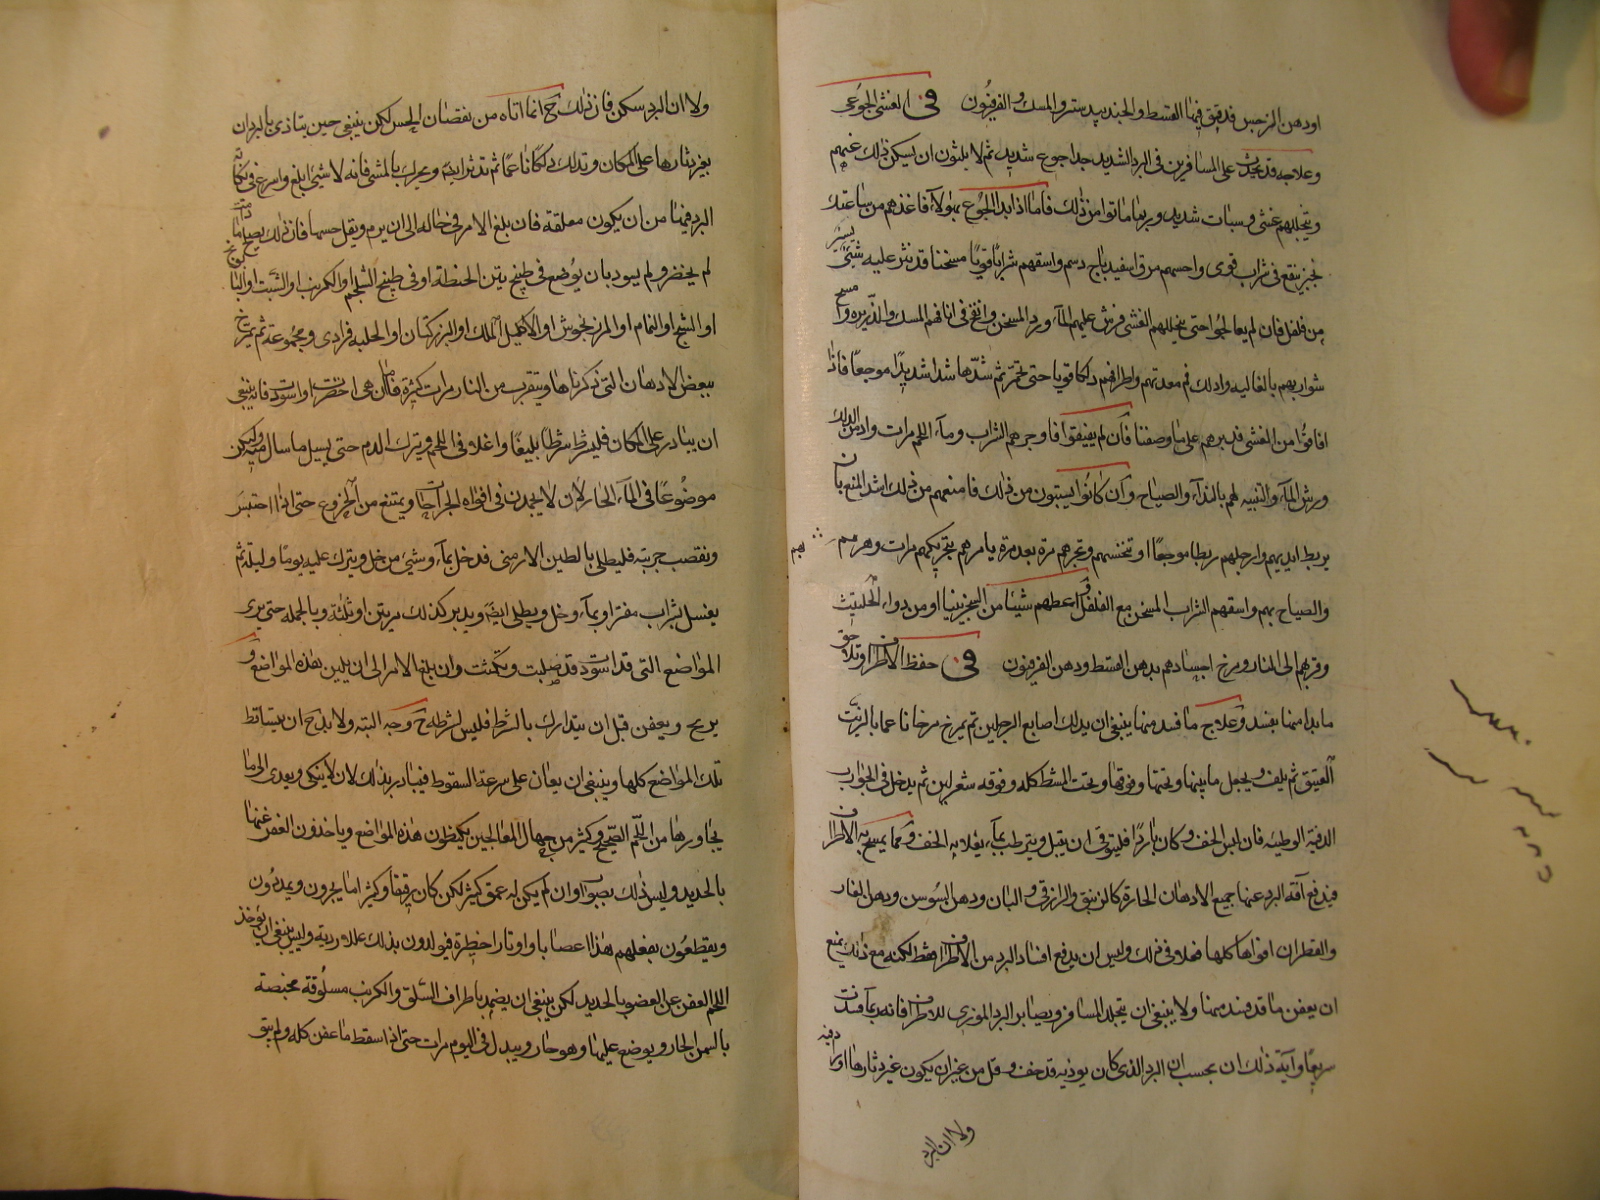 اودهن النرجس قد فتق فيها القسط والجندبيدستر والمسك والفرفيون في الغشي الجوعي
وعلاجه قد يحدث على المسافرين في البرد الشديد جدا جوع شديد ثم لا يلبثون ان يسكن ذلك عنهم
ويتخيلهم غشي وسبات شديد وربما ماتوا من ذلك فاما اذا بدا الجوع بهولآء فاغذهم من ساعتك
خبز ينقع في شراب قوي واحسهم مرق اسفيدباج دسم واسقهم شرابًا قويًا مسخنا قد نثر عليه شئ يسير
من فلفل فان لم يعالجوا حتى يتخيلهم الغشي فرش عليهم المآء ورد المسخن وانفخ في انافهم المسك والذريره وامسح
شواربهم بالغاليه وادلك فم معدتهم واطرافهم دلكا قويا حتى تحمر ثم شدّها شدا شديدًا موجعًا فاذا
افاقوا من الغشي فدبرهم على ما وصفنا فان لم يفيقوا فاوجرهم الشراب ومآء اللحم مرات وادمن الدلك
ورش المآء والتنبيه لهم بالندآء والصياح وان كانوا يسبتون من ذلك فامنعهم من ذلك اشد المنع بان
يربط ايديهم وارجلهم ربطا موجعًا او تنخسهم وتجرهم مرة بعد مرة يامرهم بتحريكهم مرات وهزهم بهم
والصياح بهم واسقهم الشراب المسخن مع الفلفل واعطهم شيئا من السجزنيا او من دواء الحلتيت
وقربهم الى النار ومرخ اجسادهم بدهن القسط ودهن الفرفيون في حفظ الاطراف وتلاحق
ما بدا منها يفسد وعلاج ما فسد منها ينبغي ان يدلك اصابع الرجلين ثم يمرخ مرخا ناعما بالزيت
العتيق ثم يلف ويجعل ما بينها وتحتها وفوقها وتحت المشط كله وفوقه شعر لين ثم يدخل في الجوارب
الدفية الوطيئه فان لبس الخف وكان باردًا فليتوق ان يبتل ويترطب بمآء يقلا به الخف ومما يمسح به الاطراف
فيدفع آفة البرد عنها جميع الادهان الحارة كالزنبق والرازقي والبان ودهن السوسن ودهن الغار
والقطران اقواها كلها فعلا في ذلك وليس ان يدفع افساد البرد من الاطراف فقط لكنه مع ذلك يمنع
ان يعفن ما قد فسد منها ولا ينبغي ان يتجلد المسافر ويصابر البرد الموذي للاطراف فانه ربما فسدت
سريعًا وآية ذلك ان يحسب ان البرد الذي كان يوذيه قد خف وقل من غير ان يكون غير دثارها او دفيه
ولا ان البرد
ولا ان البرد سكن فان ذلك ح انما اتاه من نقصان الحس لكن ينبغي حين يتاذى بالبرد ان
يغير دثارها على المكان وتدلك دلكًا ناعمًا ثم تدثر ايضًا ويحرك بالمشي فانه لا شيئ ابلغ واسرع في نكاية
البرد فيها من ان يكون معلقة فان بلغ الامر في حاله الى ان يرم ويقل حسها فان ذلك يصلح ما دامت
لم يخضر ولم يسود بان يوضع في طبيخ تبن الحنطة او في طبيخ الشلجم او الكرنب او الشبت او البابونج
او الشيح او النمام او المرزنجوش او الاكليل الملك او البزر كتان او الحلبه فرادى ومجموعة ثم يمرخ
ببعض الادهان التي ذكرناها ويتقرب من النار مرات كثيرة فاما ان هي اخضرت او اسودت فانه ينبغي
ان يبادر على المكان فليشرط شرطًا بليغًا واغلا في اللحم ويترك الدم حتى يسيل ما سال منه وليكن
موضوعًا في المآء الحار لان لا يجمد في افواه الجراحات ويمتنع من الخروج حتى اذا احتبس
ونقصت جريته فليطلى بالطين الارمني قد خل بمآء وشيئ من خل ويترك عليه يومًا وليلة ثم
يغسل بشراب مفتر او بمآء وخل ويطلى ايضًا ويدبر كذلك مرتين او ثلثة وبالجمله حتى يرى
المواضع التي قد اسودت قد صلبت وتكمشت وان بلغ الامر الى ان يلين بهذه المواضع و
يريح ويعفن قبل ان يتدارك بالشرط فليس لشرطه ح وجه البته ولا بد ح ان يتساقط
تلك المواضع كلها وينبغي ان يعان على سرعة السقوط فيبادر بذلك لان لا ينكي ويعدي الى ما
يجاورها من اللحم الصحيح وكثير من جهال المعالجين يكمظون هذه المواضع وياخذون العفن عنها
بالحديد وليس ذلك بصواب وان لم يكن له عمق كثير لكن كان رقيقا وكثيرا ما يجرون ويمدون
ويقطعون بفعلهم هذا اعصابا واوتارا خطرة فيولدون بذلك عللا رديه وليس ينبغي ان يؤخذ
اللحم العفن عن العضو بالحديد لكن ينبغي ان يضمد باطراف السلق والكرنب مسلوقة مخبصة
بالسمن الحار ويوضع عليها وهو حار ويبدل في اليوم مرات حتى اذا سقط ما عفن كله ولم يبق